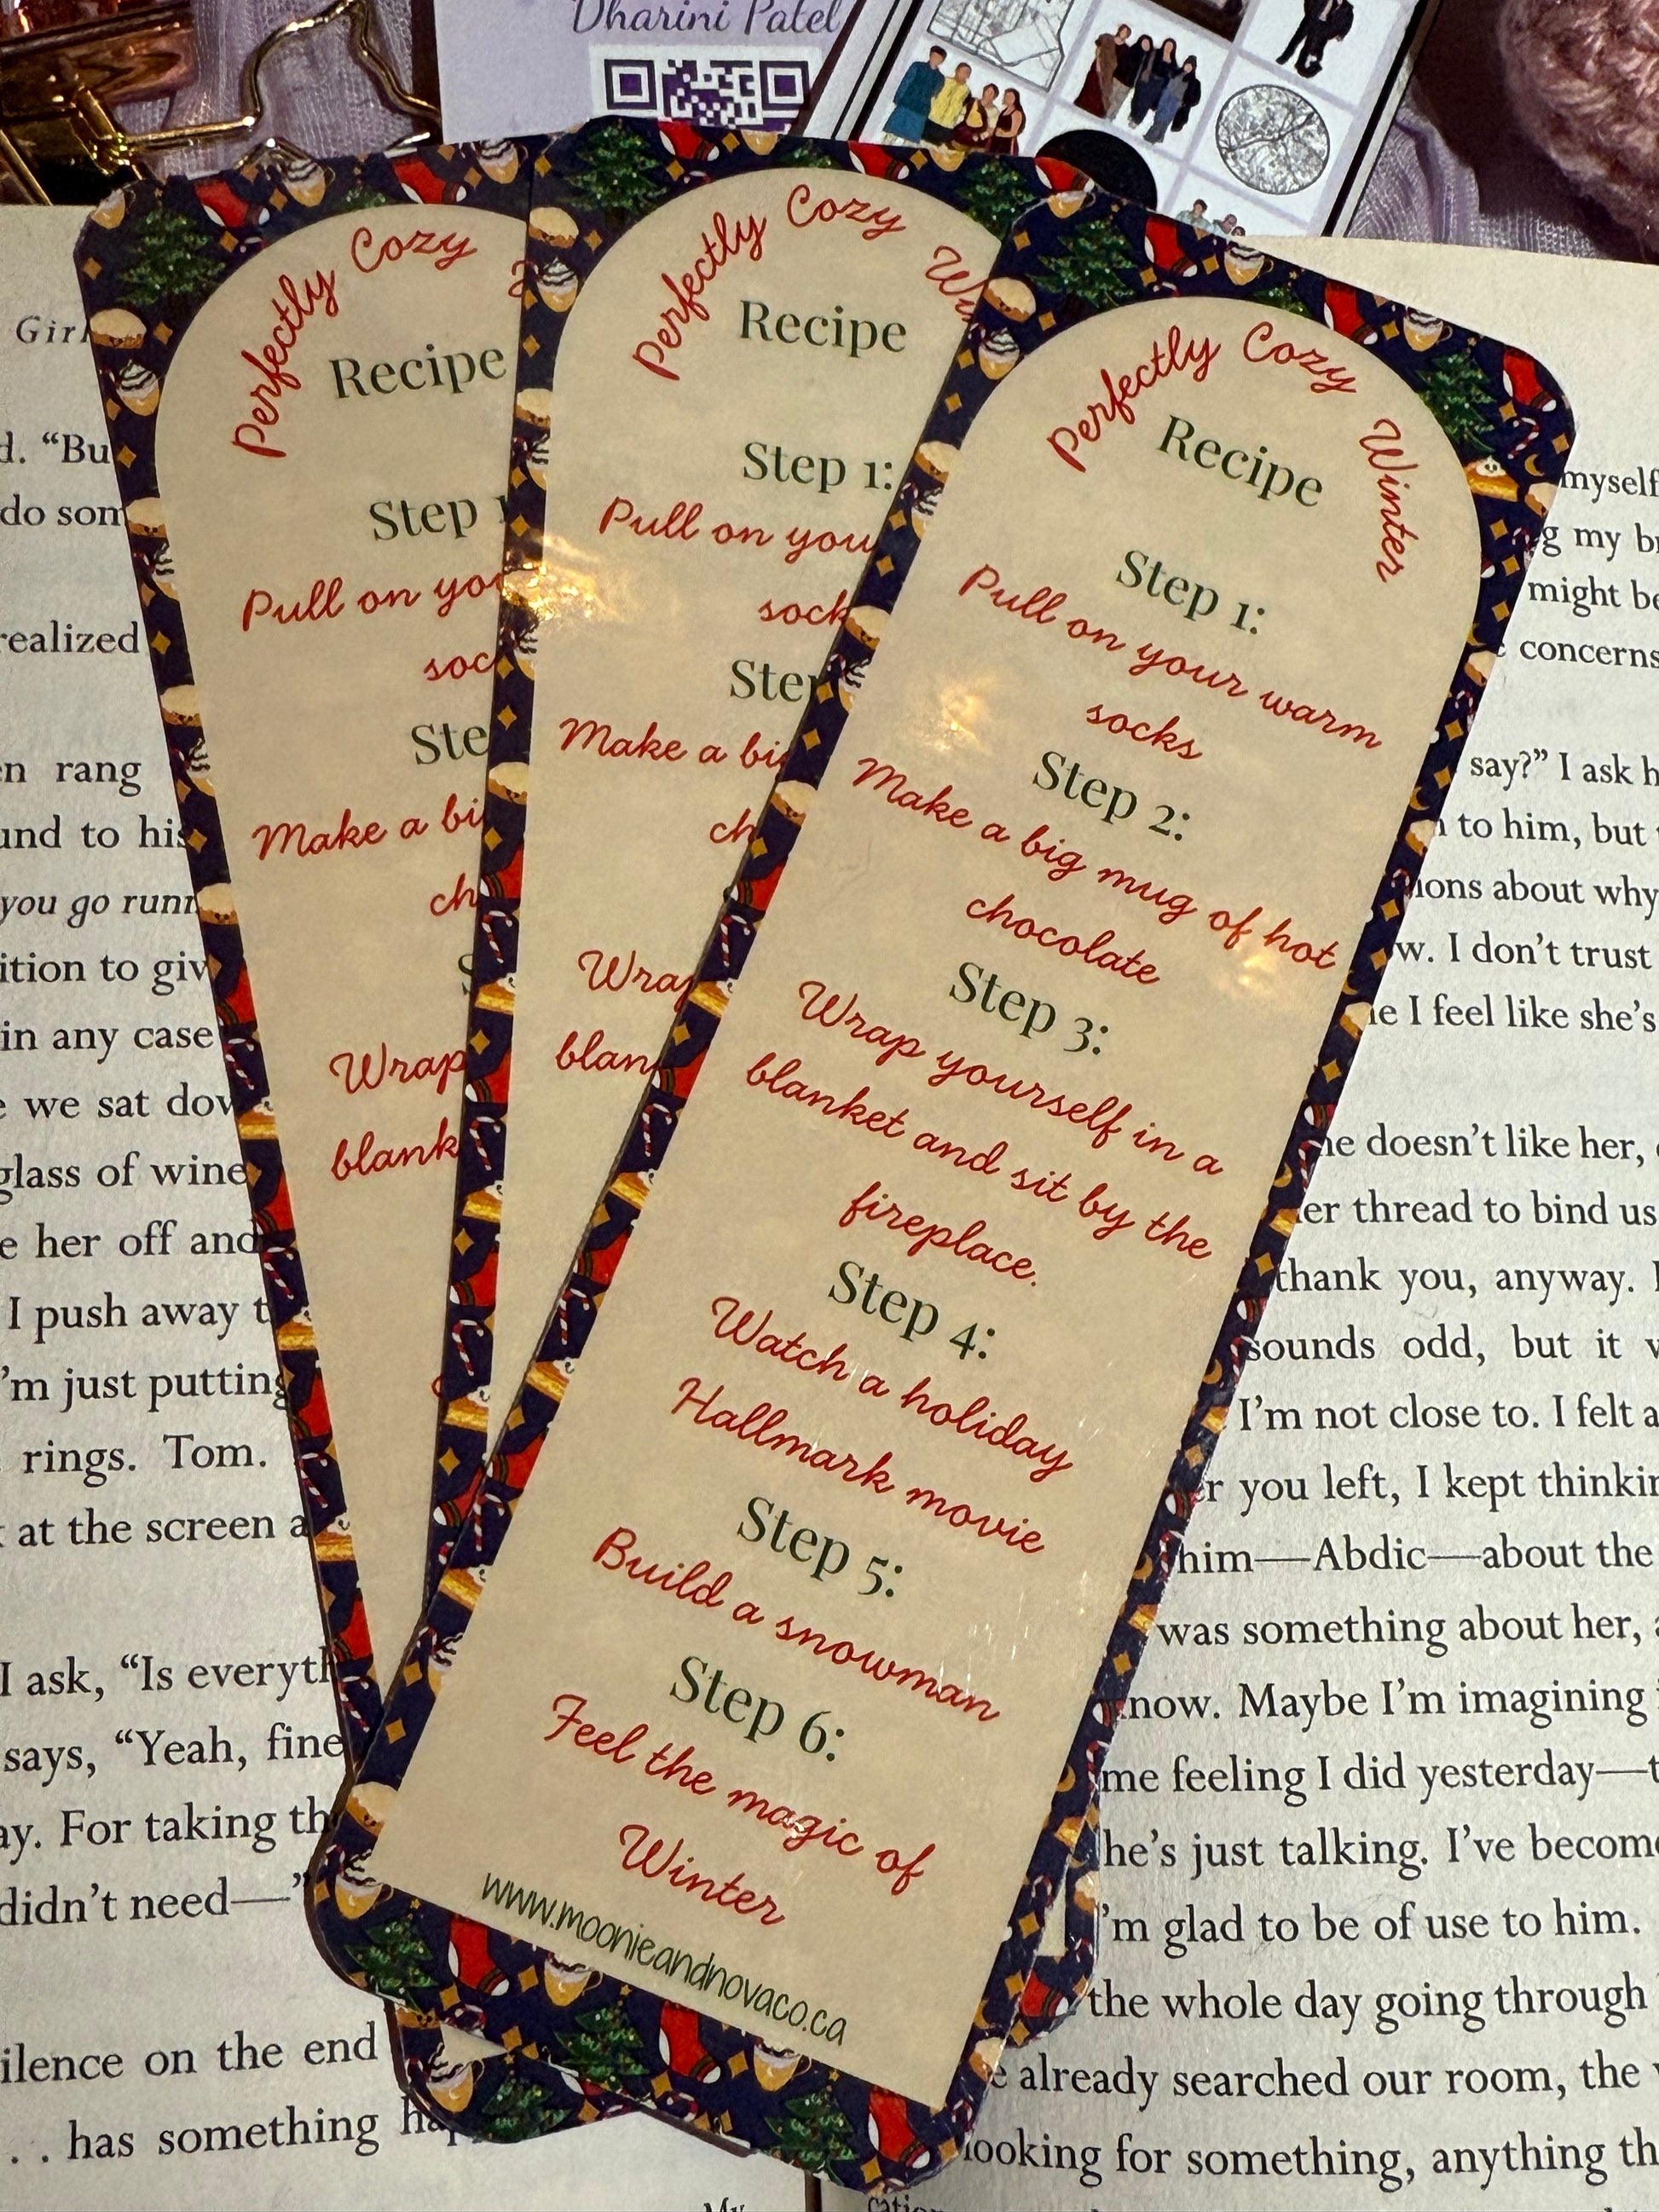 Dharini Patel
Perfectly Cozy
Recipe
Step 1
Pull on
Make a
Wrap
Perfectly Cozy
Recipe
Step 1:
Pull on
Make a
Perfectly Cozy Winter
Recipe
Step 1:
Pull on your warm
socks
Step 2:
Make a big mug of hot
chocolate
Step 3:
Wrap yourself in a
blanket and sit by the
fireplace.
Step 4:
Watch a holiday
Hallmark movie
Step 5:
Build a snowman
Step 6:
Feel the magic of
Winter
www.moonieandnovaco.ca
Girl
d. “Bu
do som
realized
en rang
und to his
you go runn
ition to giv
in any case
e we sat dow
glass of wine
e her off and
I push away t
’m just putting
rings. Tom.
at the screen a
I ask, “Is everyth
says, “Yeah, fine
ay. For taking th
didn’t need—”
ilence on the end
. . has something ha
myself
g my br
might be
concerns
say?” I ask h
to him, but
ions about why
w. I don’t trust
e I feel like she’s
he doesn’t like her,
er thread to bind us
thank you, anyway. I
sounds odd, but it w
I’m not close to. I felt a
r you left, I kept thinkin
him—Abdic—about the
was something about her, a
now. Maybe I’m imagining i
me feeling I did yesterday—t
he’s just talking. I’ve become
’m glad to be of use to him.
the whole day going through
e already searched our room, the
looking for something, anything th